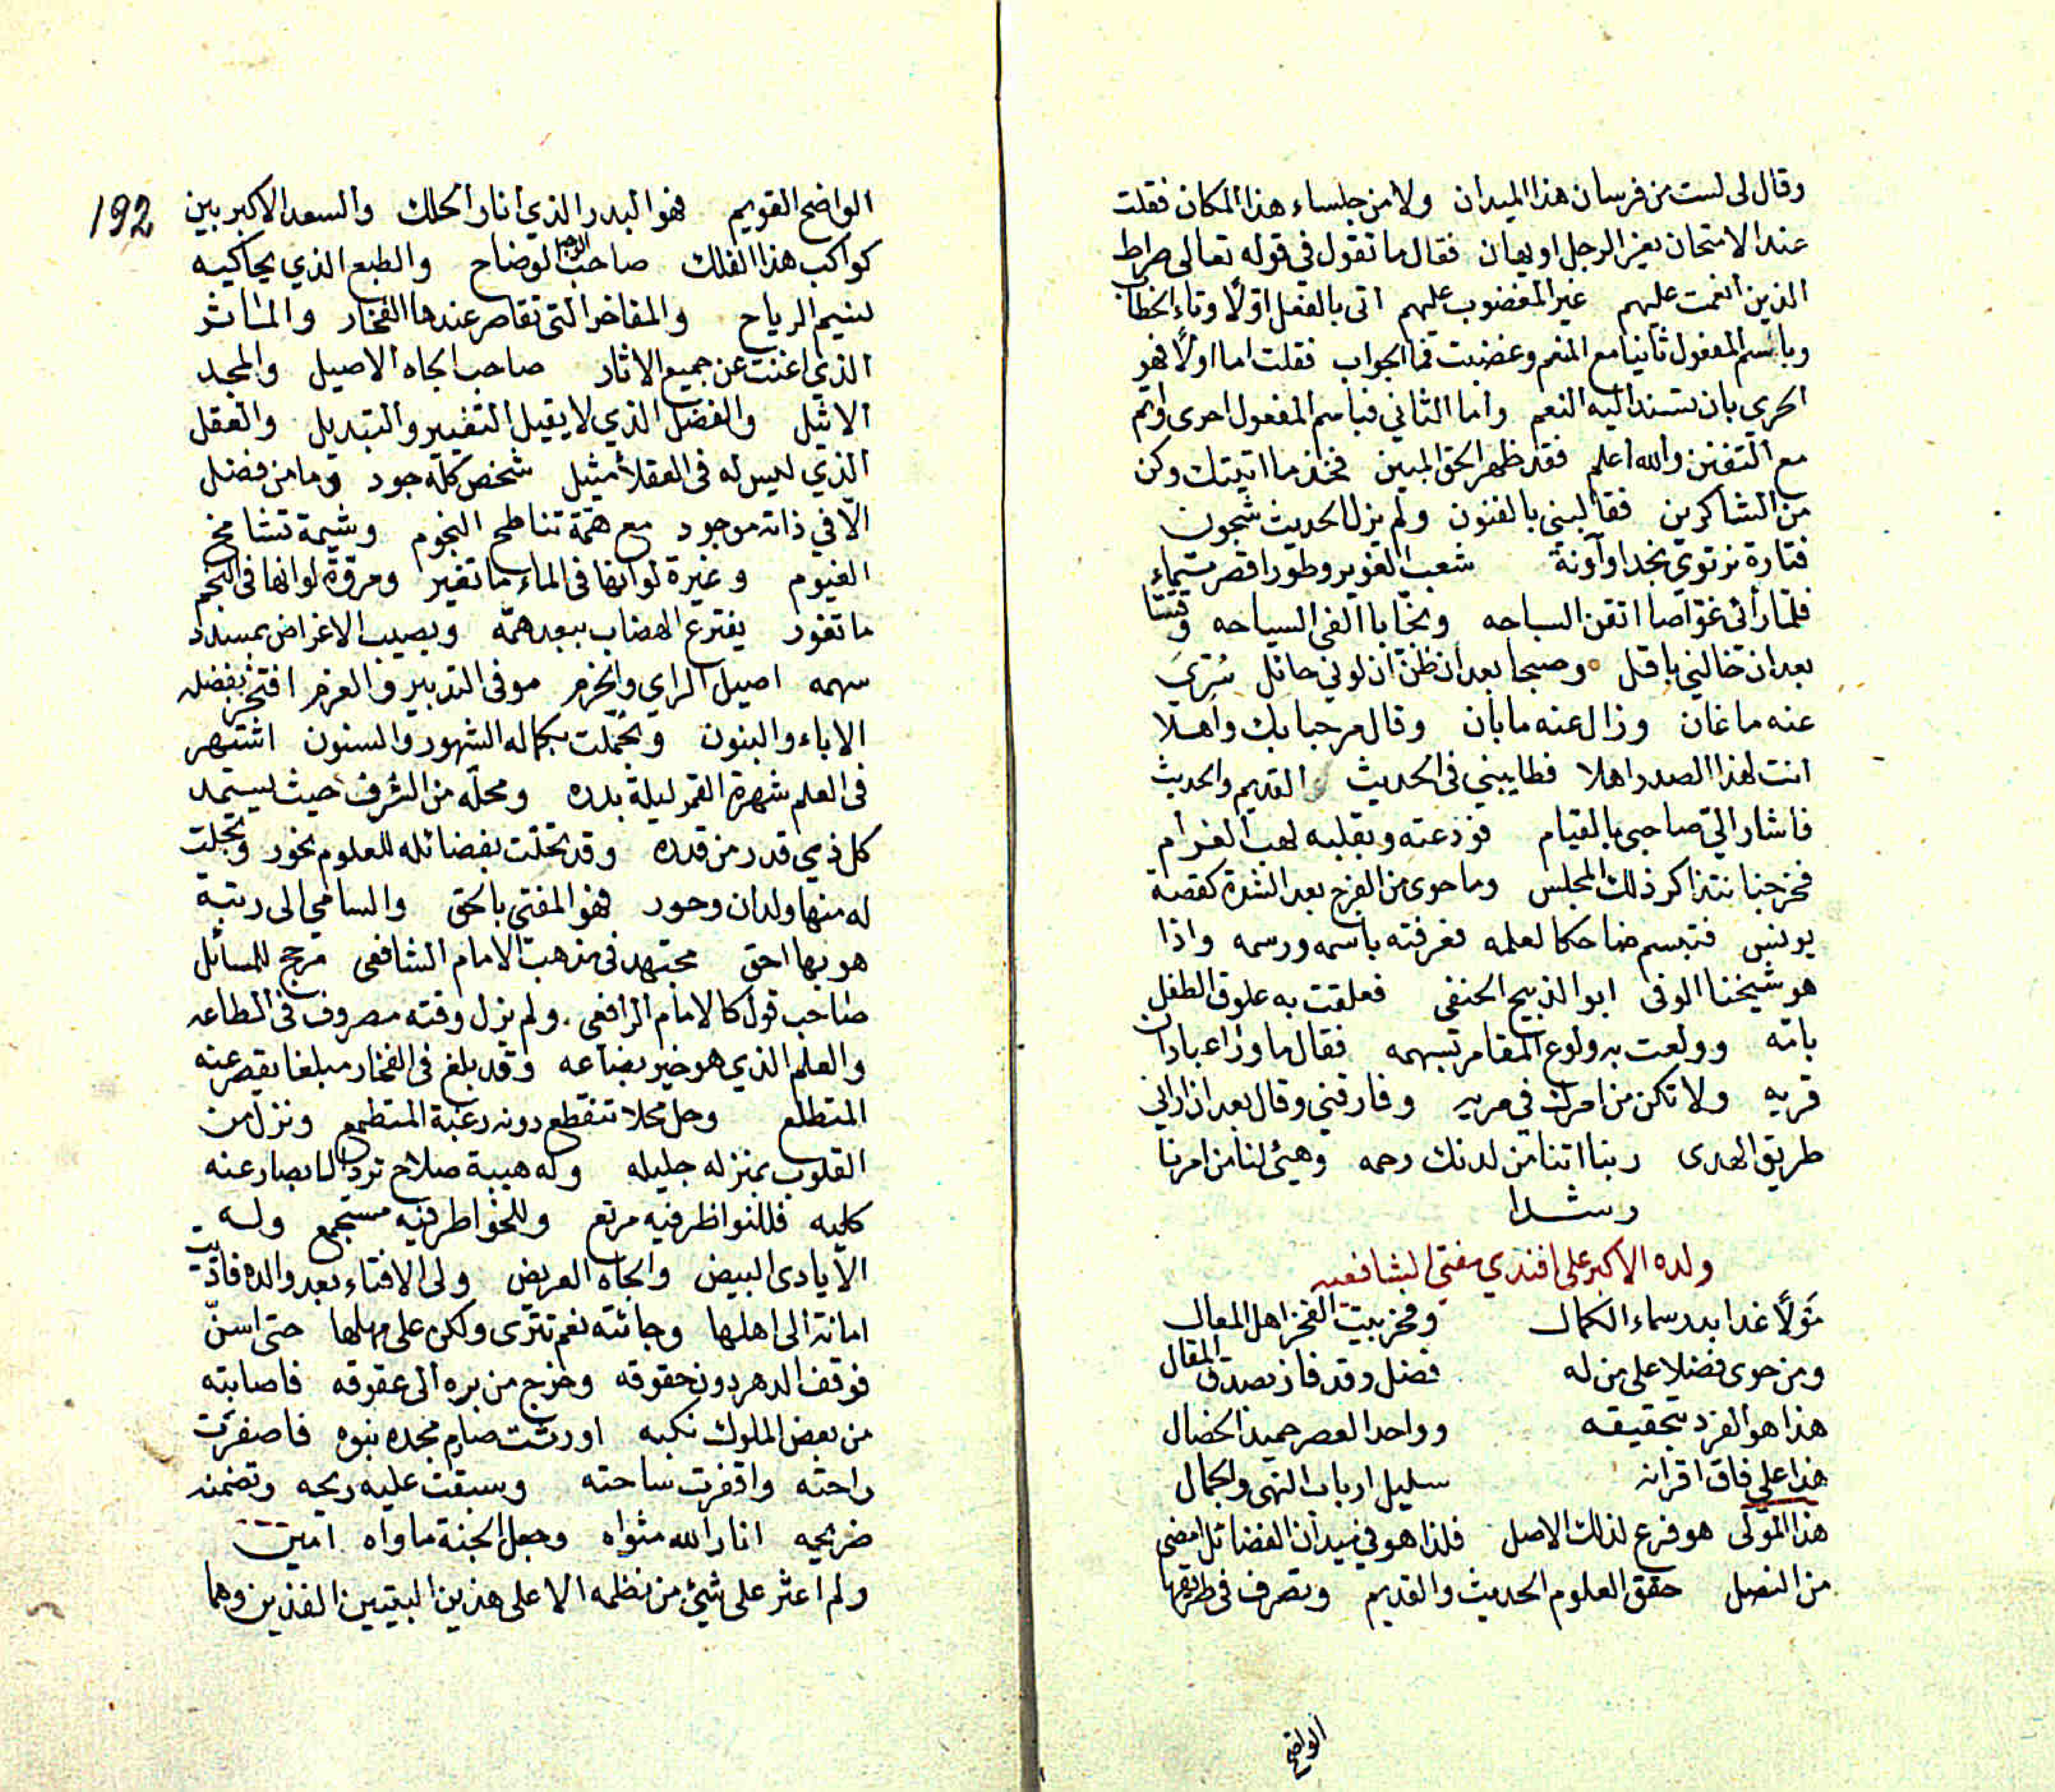 وقال لى لست من فرسان هذا الميدان ولا من جلساء هذا المكان فقلت
عند الامتحان يعز الرجل او يهان فقال ما تقول في قوله تعالى صراط
الذين انعمت عليهم غير المغضوب عليهم اتى بالفعل اوّلًا وتاء الخطاب
وباسم المفعول ثانيا مع المنعم وغضبت فما الجواب فقلت اما اولًا فهو
الحري بان تسند اليه النعم واما الثاني فباسم المفعول احرى واتم
مع التفنن والله اعلم فقد ظهر الحق المبين فخذ ما اتيتك وكن
من الشاكرين فقابلني بالفنون ولم يزل الحديث شجون
فتارة نرتوي نجدا وآونة شعب الغوير وطورا قصر تيماء
فلمّا رأنى غوّاصا اتقن السباحه ونجّابا الفى السياحه وقسّا
بعد ان خالني باقل وصبحا بعد ان ظنّ ان لوني حائل سُرّي
عنه ما غان وزال عنه ما بان وقال مرحبا بك واهلا
انت لهذا الصدر اهلا فطايبني فى الحديث القديم والحديث
فاشار اليّ صاحبى بالقيام فودعته وبقلبه لهب الغرام
فخرجنا نتذاكر ذلك المجلس وما حوى من الفرج بعد الشدة كقصة
يونس فتبسم ضاحكا لعلمه فعرفته باسمه ورسمه واذا
هو شيخنا الوفى ابو الذبيح الحنفى فعلقت به علوق الطفل
بامّه وولعت به ولوع المقامر بسهمه فقال ما وراء عبادان
قريه ولا تكن من امرك في مريه وفارقني وقال بعد ان اراني
طريق الهدى ربنا اتنا من لدنك رحمه وهيئ لنا من امرنا
رشدا
ولده الاكبر على افندي مفتى الشافعيه
مَولًا غدا بدر سماء الكمال وفخر بيت الفخر اهل المعال
ومن حوى فضلا على من له فضل وقد فاز بصدق المقال
هذا هو الفرد بتحقيقه وواحد العصر حميد الخصال
هذا علي فاق اقرانه سليل ارباب النهى والجمال
هذا المولى هو فرع لذلك الاصل فلذا هو في ميدان الفضائل امضى
من النصل حقق العلوم الحديث والقديم وتصرف فى طريقها
الواضح
192
الواضح القويم فهو البدر الذي انار الحلك والسعد الاكبر بين
كواكب هذا الفلك صاحب الوجه الوضاح والطبع الذي يحاكيه
نسيم الرياح والمفاخر التى تقاصر عندها الفخار والمآثر
الذي اغنت عن جميع الاثار صاحب الجاه الاصيل والمجد
الاثيل والفضل الذي لا يقبل التغيير والتبديل والعقل
الذي ليس له فى العقلا مثيل شخص كلّه جود وما من فضل
الّا في ذاته موجود مع همّة تناطح النجوم وشيمة تشامخ
الغيوم وغيرة لو انها فى الماء ما تغير ومروّة لو انها فى النجم
ما تغور يفترع الهضاب ببعد همّه ويصيب الاغراض بمسدد
سهمه اصيل الراي والحزم موفى التدبير والعزم افتخر بفضله
الاباء والبنون وتجمّلت بكماله الشهور والسنون اشتهر
فى العلم شهرة القمر ليلة بدره ومحلّه من الشرف حيث يستمد
كل ذي قدر من قدره وقد تحلّت بفضائله للعلوم نحور وتجلّت
له منها ولدان وحور فهو المفتى بالحق والسامي الى رتبة
هو بها احق مجتهد فى مذهب الامام الشافعى مرجح للمسائل
صاحب قول كالامام الرافعى ولم يزل وقته مصروف فى الطاعه
والعلم الذي هو خير بضاعه وقد بلغ فى الفخار مبلغا يقصر عنه
المتطلع وحل محلا تنقطع دونه رغبة المتطمع ونزل من
القلوب بمنزله جليله وله هيبة صلاح تردّ الابصار عنه
كليه فللنواظر فيه مرتع وللخواطر فيه مستجمع وله
الايادى البيض والجاه العريض ولى الافتاء بعد والده فادّيت
امانة الى اهلها وجائته نعم تترى ولكن على مهلها حتى اسنّ
فوقف الدهر دون حقوقه وخرج من بره الى عقوقه فاصابته
من بعض الملوك نكبه اورثت صارم مجده نبوه فاصفرت
راحته واقفرت ساحته وسبقت عليه ريحه وتضمنه
ضريحه انار الله مثواه وجعل الجنة ماواه امين
ولم اعثر على شيئ من نظمه الا على هذين البيتين الفذين وهما